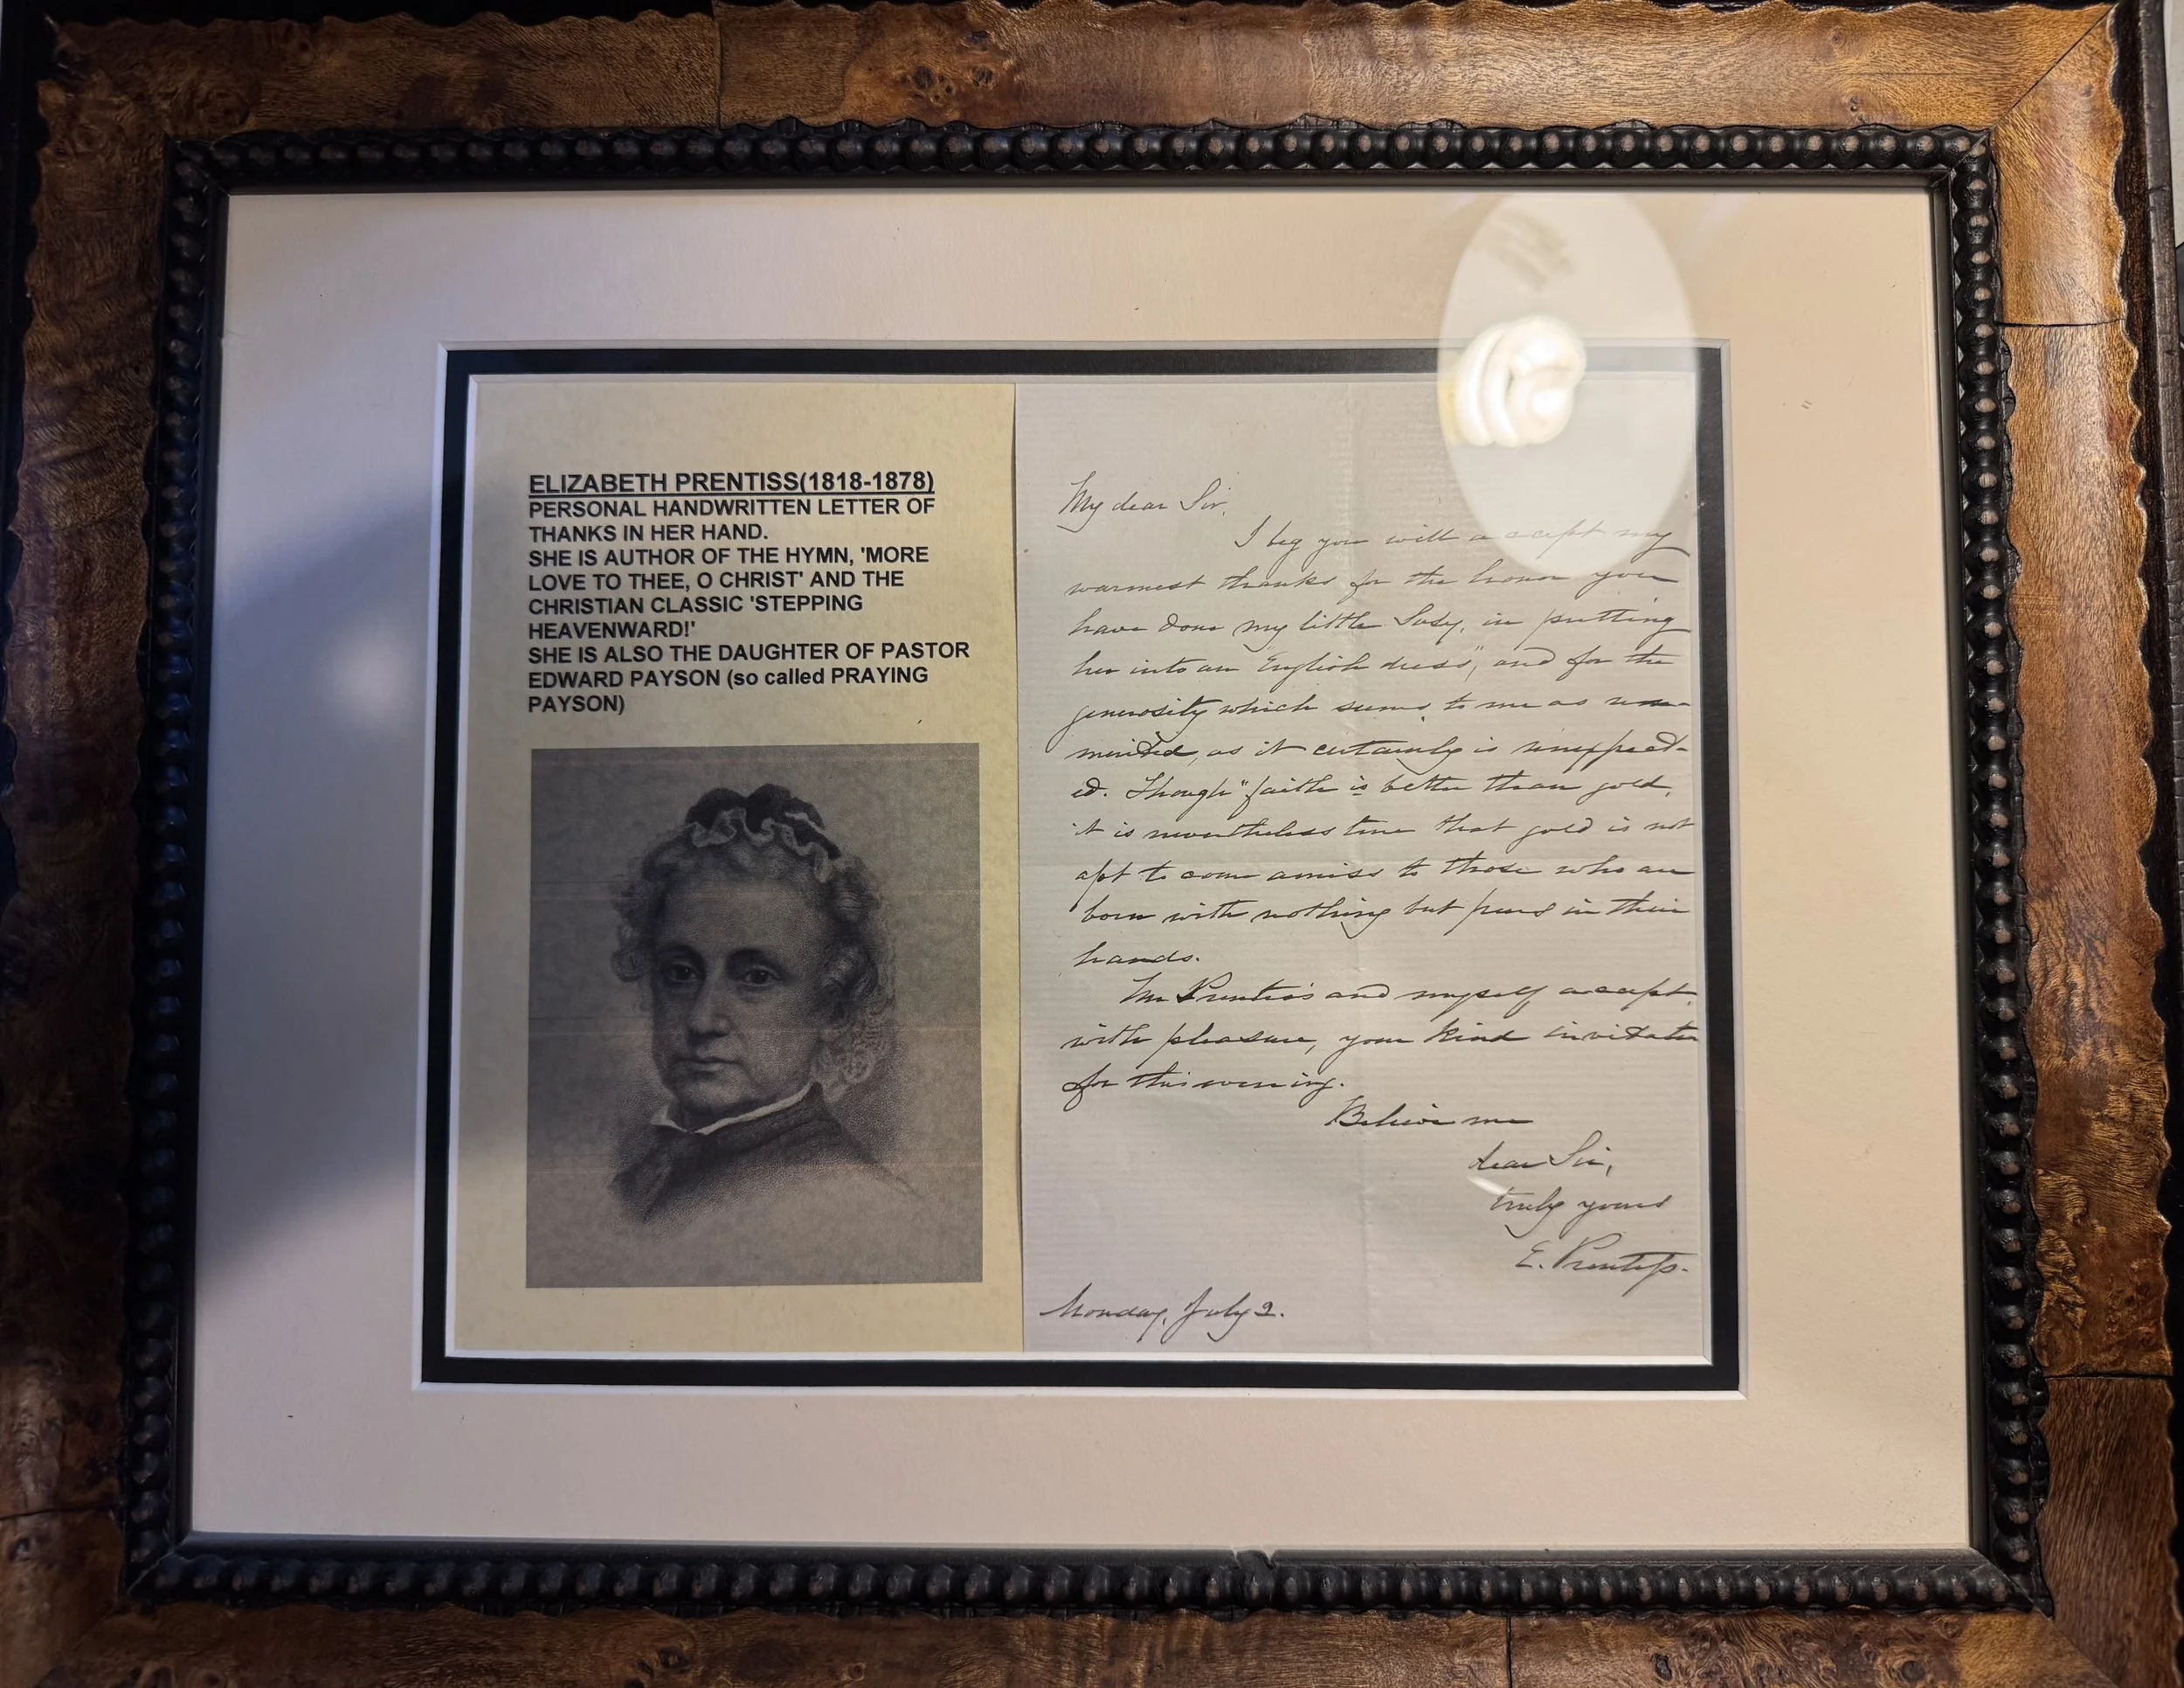 ELIZABETH PRENTISS(1818-1878)
PERSONAL HANDWRITTEN LETTER OF
THANKS IN HER HAND.
SHE IS AUTHOR OF THE HYMN, 'MORE
LOVE TO THEE, O CHRIST' AND THE
CHRISTIAN CLASSIC 'STEPPING
HEAVENWARD!'
SHE IS ALSO THE DAUGHTER OF PASTOR
EDWARD PAYSON (so called PRAYING
PAYSON)
My dear Sir,
I beg you will accept my
warmest thanks for the honor you
have done my little Susy, in putting
her into an "English dress", and for the
generosity which seems to me as un-
merited, as it certainly is unexpect-
ed. Though "faith is better than gold,
it is nevertheless true that gold is not
apt to come amiss to those who are
born with nothing but pens in their
hands.
Mr Prentiss and myself accept,
with pleasure, your kind invitation
for this evening.
Believe me
dear Sir,
truly yours
E. Prentiss.
Monday, July 2.